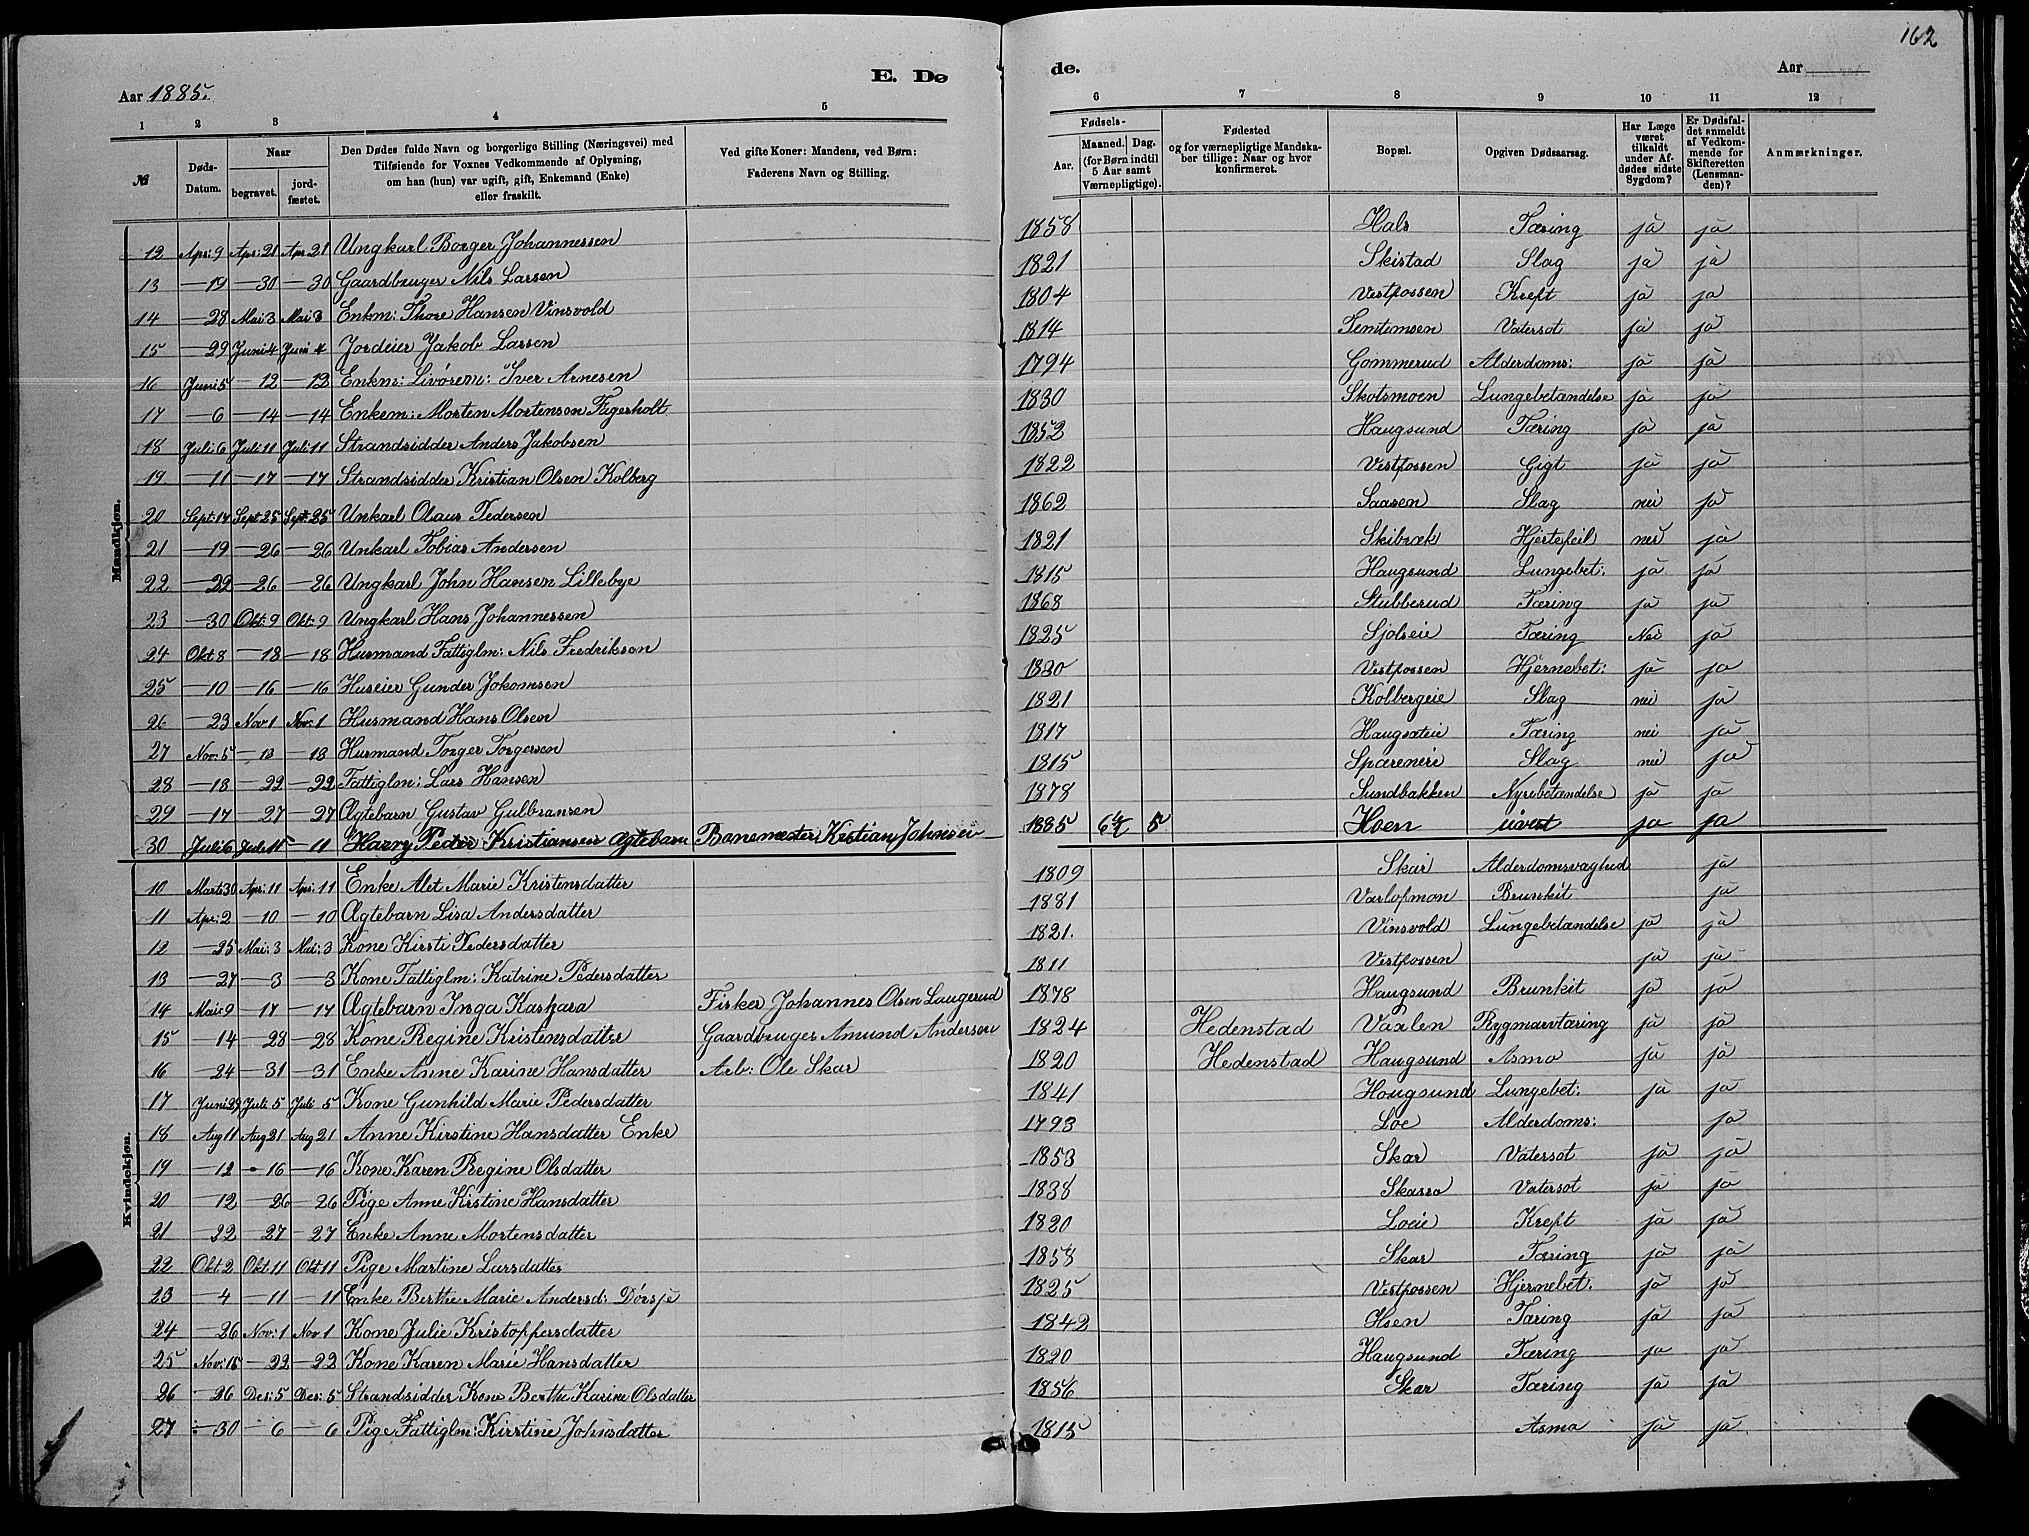 162
E. Dø
de.
Aar 1885.
Aar
1 2 3 4 5
6 7 8 9 10 11 12
№
Døds-Datum.
Naar
begravet.
jord-fæstet.
Den Dødes fulde Navn og borgerlige Stilling (Næringsvei) med
Tilføiende for Voxnes Vedkommende af Oplysning,
om han (hun) var ugift, gift, Enkemand (Enke)
eller fraskilt.
Ved gifte Koner: Mandens, ved Børn:
Faderens Navn og Stilling.
Fødsels-
Aar.
Maaned. Dag.
(for Børn indtil
5 Aar samt
Værnepligtige).
Fødested
og for værnepligtige Mandska-
ber tillige: Naar og hvor
konfirmeret.
Bopæl.
Opgiven Dødsaarsag.
Har Læge
været
tilkaldt
under Af-
dødes sidste
Sygdom?
Er Dødsfal-
det anmeldt
af Vedkom-
mende for
Skifteretten
(Lensman-
den)?
Anmærkninger.
Mandkjøn.
12 Apr: 9 Apr: 21 Apr 21 Ungkarl Borger Johannessen 1858 Hals Tæring ja ja
13 — 19 — 30 — 30 Gaardbruger Nils Larsen 1821 Skistad Slag ja ja
14 — 28 Mai 3 Mai 3 Enkm: Thore Hansen Vinsvold 1804 Vestfossen Kreft ja ja
15 — 29 Juni 4 Juni 4 Jordeier Jakob Larsen 1814 Temtemsen Vatersot ja ja
16 Juni 5 — 12 — 12 Enkm: Livørem: Iver Arnesen 1794 Gommerud Alderdoms: ja ja
17 — 6 — 14 — 14 Enkem: Morten Mortensen Fagerholt 1830 Skotsmoen Lungebetændelse ja ja
18 Juli 6 Juli 11 Juli 11 Strandsidder Anders Jakobsen 1852 Haugsund Tæring ja ja
19 — 11 — 17 — 17 Strandsidder Kristian Olsen Kolberg 1822 Vestfossen Gigt ja ja
20 Sept: 14 Sept 25 Sept: 25 Unkarl Olaus Pedersen 1862 Saasen Slag nei ja
21 — 19 — 26 — 26 Unkarl Tobias Andersen 1821 Skibræk Hjertefeil nei ja
22 — 22 — 26 — 26 Ungkarl John Hansen Lillebye 1815 Haugsund Lungebet: ja ja
23 — 30 Okt: 9 Okt: 9 Ungkarl Hans Johannessen 1868 Stubberud Tæring ja ja
24 Okt 8 — 18 — 18 Husmand Fattiglm: Nils Fredriksen 1825 Sjolseie Tæring Nei ja
25 — 10 — 16 — 16 Huseier Gunder Jokomsen 1820 Vestfossen Hjernebet: ja ja
26 — 23 Nov 1 Nov: 1 Husmand Hans Olsen 1821 Kolbergeie Slag nei ja
27 Nov: 5 — 13 — 13 Husmand Torger Torgersen 1817 Haugsæteie Tæring nei ja
28 — 18 — 22 — 22 Fattiglm: Lars Hansen 1815 Spæreneie Slag nei ja
29 — 17 — 27 — 27 Ægtebarn Gustav Gulbransen 1878 Sundbakken Nyrebetændelse ja ja
30 Juli 6 Juli 11 — 11 Harry Peder Kristiansen Ægtebarn Banemester Kristian Johnsen 1885 6/4 5 Hoen uvist ja ja
Kvindekjøn.
10 Marts 30 Apr: 11 Apr: 11 Enke Alet Marie Kristensdatter 1809 Skar Alderdomsvaghed ja
11 Apr: 2 — 10 — 10 Ægtebarn Lisa Andersdatter 1881 Varlopmon Brunkit ja
12 — 25 Mai: 3 Mai: 3 Kone Kirsti Pedersdatter 1821. Vinsvold Lungebetændelse ja ja
13 — 27 — 3 — 3 Kone Fattiglm: Katrine Pedersdatter 1811 Vestfossen ja ja
14 Mai: 9 — 17 — 17 Ægtebarn Inga Kaspara Fisker Johannes Olsen Laugerud 1878 Haugsund Brunkit ja ja
15 — 14 — 28 — 28 Kone Regine Kristensdatter Gaardbruger Amund Andersen 1824 Hedenstad Vaxlen Rygmarvtæring ja ja
16 — 24 — 31 — 31 Enke Anne Karine Hansdatter Arb: Ole Skar 1820 Hedenstad Haugsund Asma ja ja
17 Juni 29 Juli 5 Juli 5 Kone Gunhild Marie Pedersdatter 1841 Hougsund Lungebet: ja ja
18 Aug 11 Aug 21 Aug 21 Anne Kirstine Hansdatter Enke 1793 Loe Alderdoms: ja
19 — 12 — 16 — 16 Kone Karen Regine Olsdatter 1853 Skar Vatersot ja ja
20 — 12 — 26 — 26 Pige Anne Kristine Hansdatter 1838 Skarra Vatersot ja ja
21 — 22 — 27 — 27 Enke Anne Mortensdatter 1820 Loeie Kreft ja ja
22 Okt: 2 Okt 11 Okt 11 Pige Martine Larsdatter 1858 Skar Tæring ja ja
23 — 4 — 11 — 11 Enke Berthe Marie Andersd: Dørsje 1825 Vestfossen Hjernebet. ja ja
24 — 26 Nov: 1 Nov 1 Kone Julie Kristoffersdatter 1842 Hsen Tæring ja ja
25 Nov: 15 — 22 — 22 Kone Karen Marie Hansdatter 1820 Haugsund Tæring ja ja
26 — 26 Des: 5 Des: 5 Strandsidder Kone Berthe Karine Olsdatter 1856 Skar Tæring ja ja
27 — 30 — 6 — 6 Pige Fattiglm: Kirstine Johnsdatter 1815 Asma ja ja